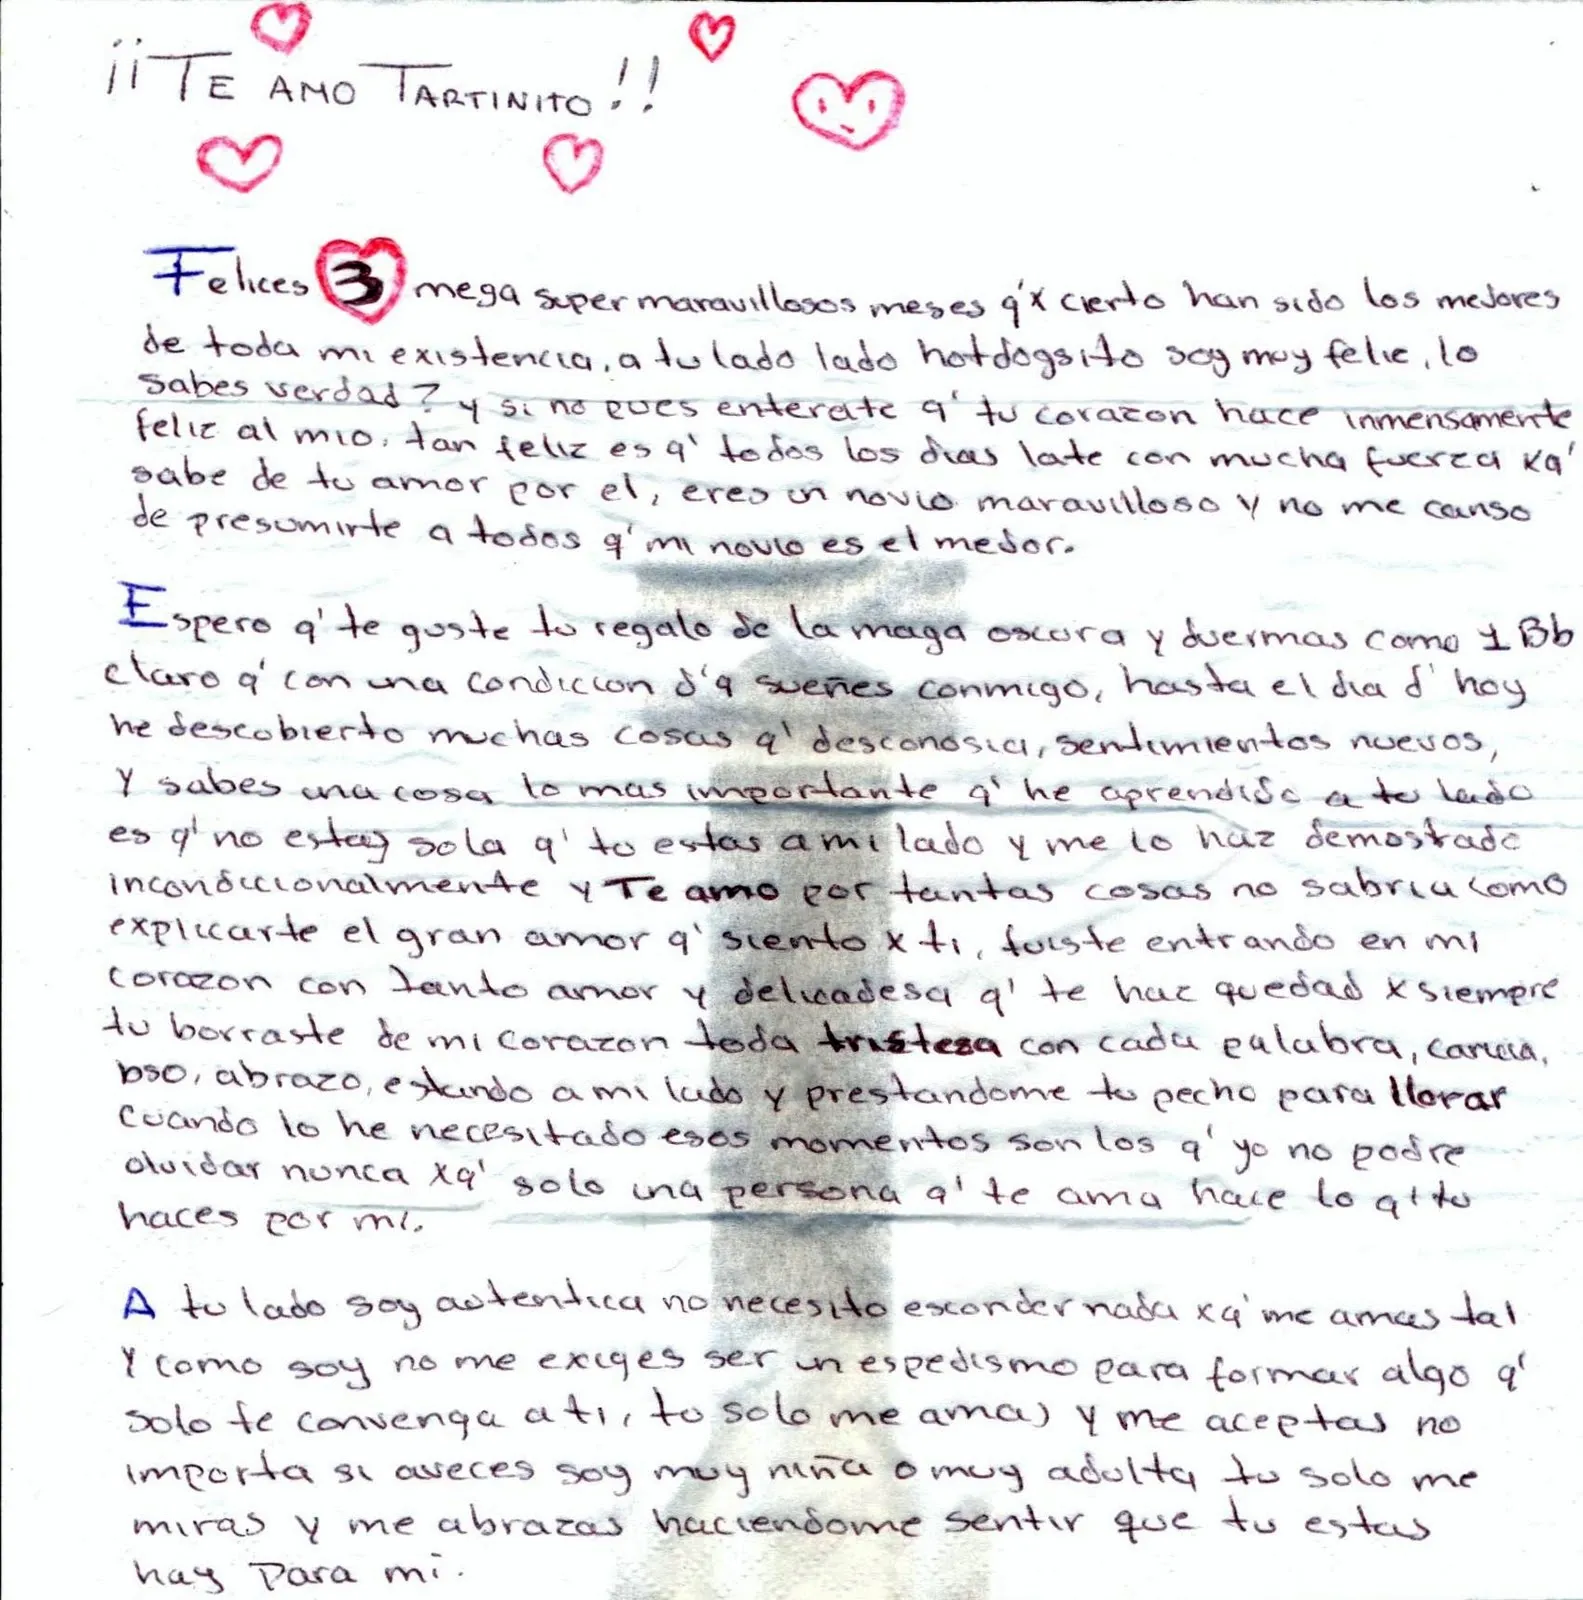 ¡¡TE AMO TARTINITO!!
Felices 3 mega super maravillosos meses q'x cierto han sido los mejores
de toda mi existencia, a tu lado lado hotdogsito soy muy felie, lo
sabes verdad? y si no pues enterate q' tu corazon hace inmensamente
feliz al mio, tan feliz es q' todos los dias late con mucha fuerza xq'
sabe de tu amor por el, eres un novio maravilloso y no me canso
de presumirte a todos q' mi novio es el mejor.
Espero q' te guste tu regalo de la maga oscura y duermas como 1 Bb
claro q' con una condicion d'q sueñes conmigo, hasta el dia d' hoy
he descubierto muchas cosas q' desconosia, sentimientos nuevos,
Y sabes una cosa lo mas importante q' he aprendido a tu lado
es q' no estoy sola q' tu estas a mi lado y me lo haz demostrado
incondicionalmente y Te amo por tantas cosas no sabria como
explicarte el gran amor q' siento x ti, fuiste entrando en mi
corazon con tanto amor y delicadesa q' te haz quedad x siempre
tu borraste de mi corazon toda tristesa con cada palabra, caricia,
bso, abrazo, estando a mi lado y prestandome tu pecho para llorar
cuando lo he necesitado esos momentos son los q' yo no podre
olvidar nunca xq' solo una persona q' te ama hace lo q' tu
haces por mi.
A tu lado soy autentica no necesito esconder nada xq' me amas tal
Y como soy no me exiges ser un espedismo para formar algo q'
solo te convenga a ti, tu solo me amas y me aceptas no
importa si aveces soy muy niña o muy adulta tu solo me
miras y me abrazas haciendome sentir que tu estas
hay para mi.